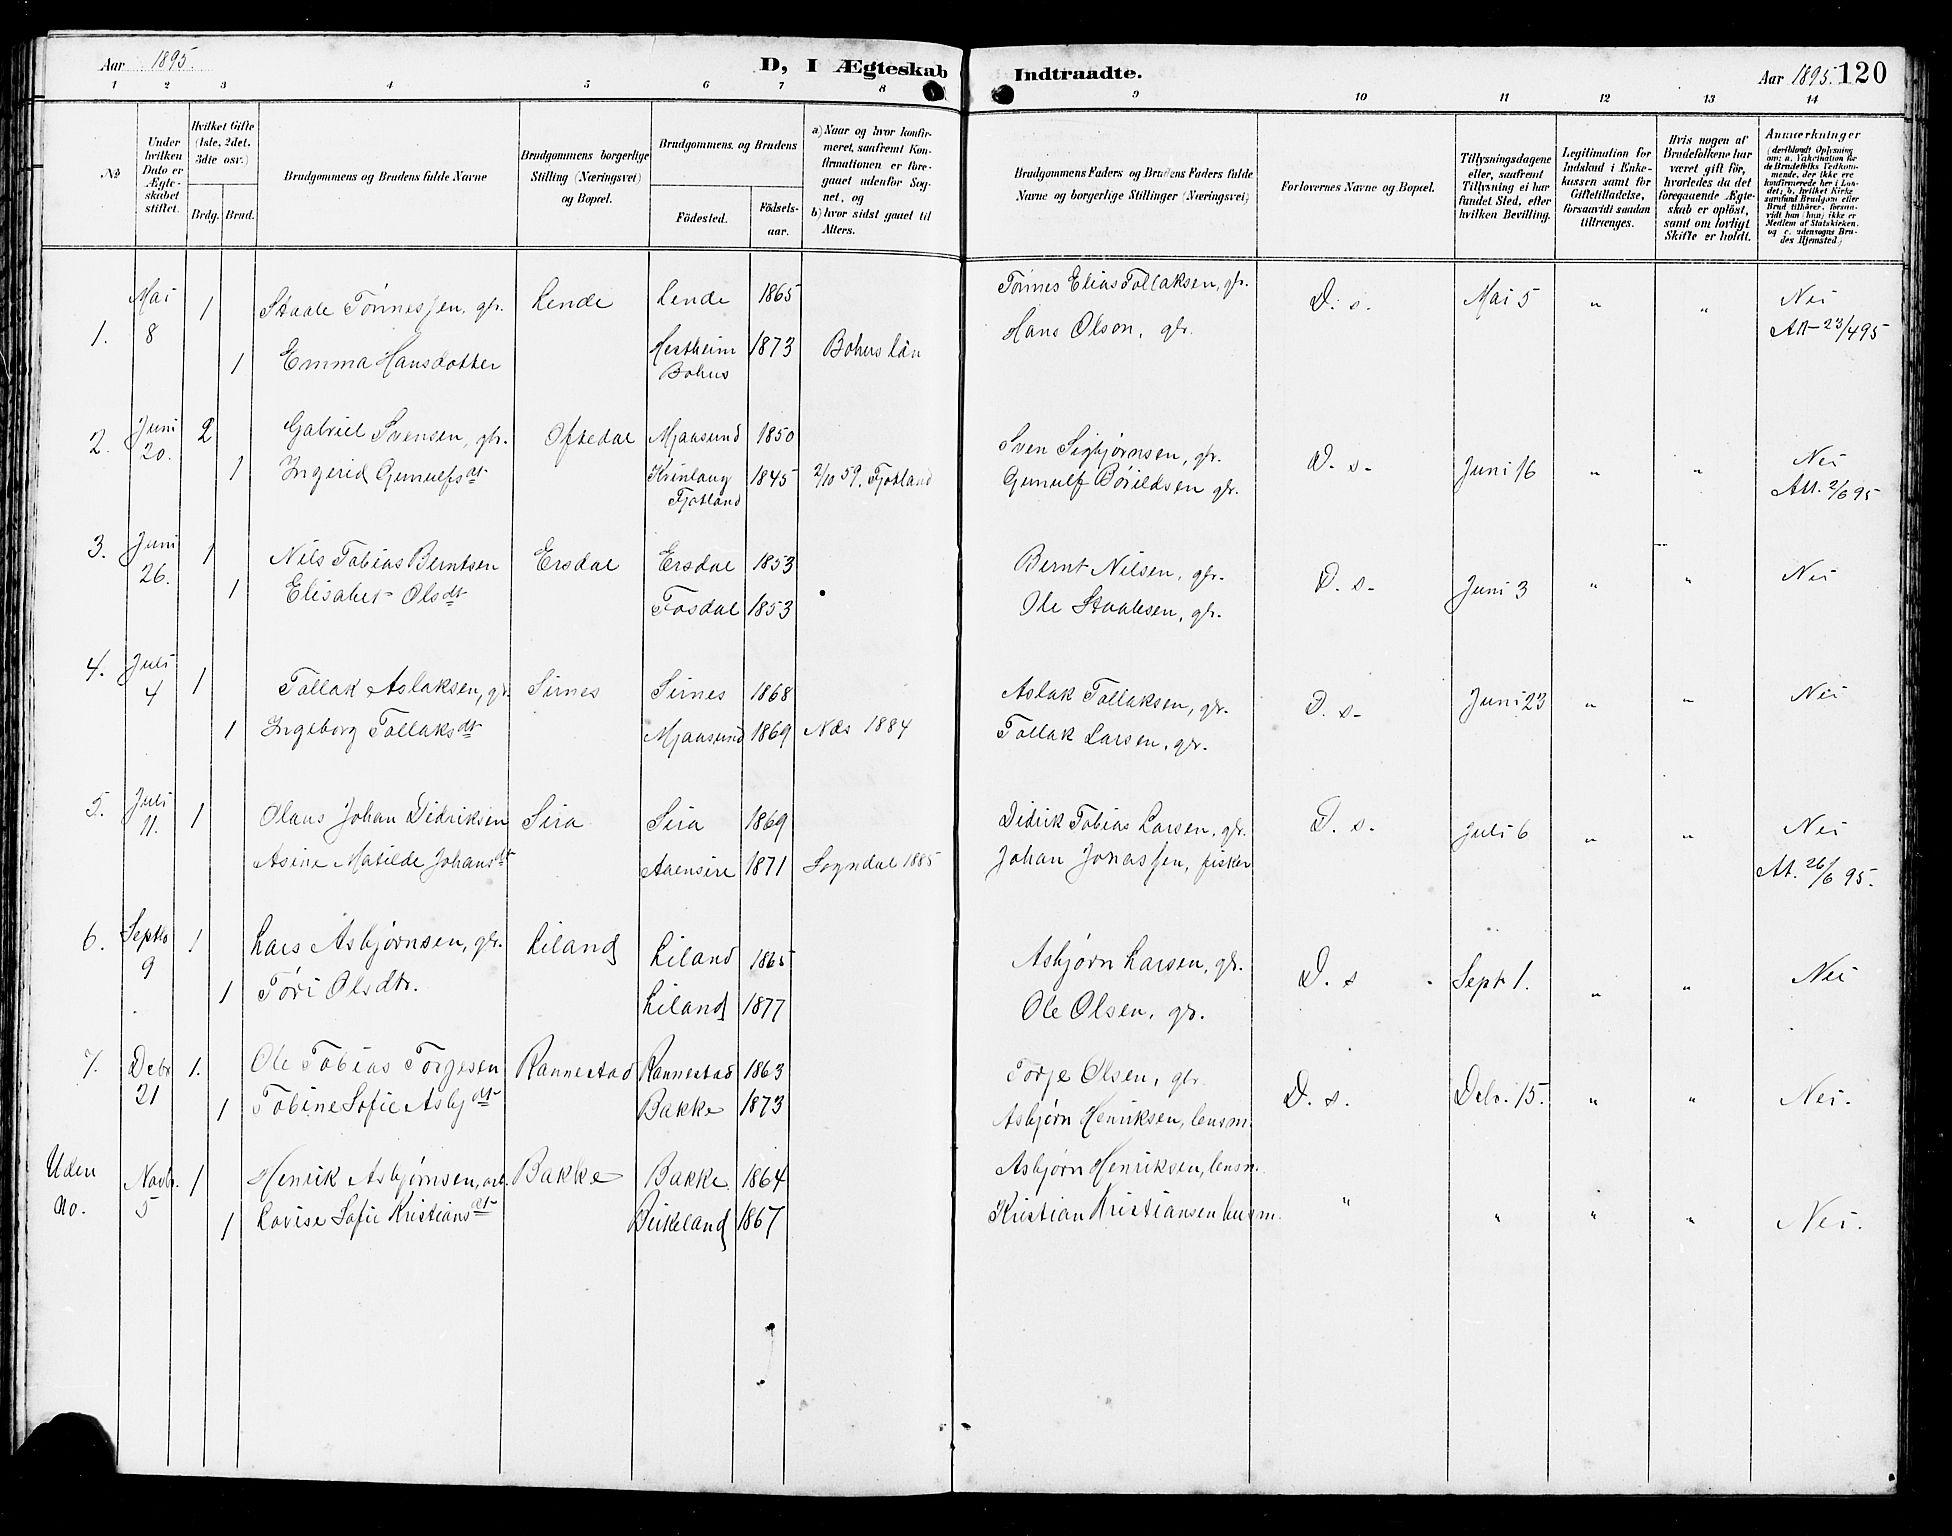 Aar 1895.
D, I Ægteskab Indtraadte.
Aar 1895. 120
1 2 3 4 5 6 7 8 9 10 11 12 13 14
No
Under hvilken Dato er Ægteskabet stiftet.
Hvilket Gifte (1ste, 2det, 3die osv.)
Brdg. Brud.
Brudgommens og Brudens fulde Navne
Brudgommens borgerlige Stilling (Næringsvei) og Bopæl.
Brudgommens og Brudens
Fødested. Fødselsaar.
a) Naar og hvor konfirmeret, saafremt Konfirmationen er foregaaet udenfor Sognet, og
b) hvor sidst gaaet til Alters.
Brudgommens Faders og Brudens Faders fulde Navne og borgerlige Stillinger (Næringsvei)
Forlovernes Navne og Bopæl.
Tillysningsdagene eller, saafremt Tillysning ei har fundet Sted, efter hvilken Bevilling.
Legitimation for Indskud i Enkekassen samt for Giftetilladelse, forsaavidt saadan tiltrænges.
Hvis nogen af Brudefolkene har været gift før, hvorledes da det foregaaende Ægteskab er opløst, samt om lovligt Skifte er holdt.
Anmærkninger (deriblandt Oplysning om: a. Vakcination for de Brudefolks Vedkommende, der ikke ere konfirmerede her i Landet; b. hvilket Kirkesamfund Brudgom eller Brud tilhører, forsaavidt han (hun) ikke er Medlem af Statskirken, og c. udensogns Brudes Hjemsted.)
1. Mai 8 1 Staale Tønnessen, gbr. Lende Lende 1865 Tønnes Elias Tollaksen, gbr. D. s. Mai 5 " " Nei
1 Emma Hansdotter Hestheim Bohus 1873 Bohus län Hans Olson, gbr. Att 23/4 95
2. Juni 20. 2 Gabriel Svensen, gbr. Oftedal Mjaasund 1850 Sven Sigbjørnsen, gbr. D. s. Juni 16 " " Nei
1 Ingerid Gunulfsdt Fjotland 1845 2/10 59. Fjotland Gunulf Bórildsen gbr. Att. 2/6 95
3. Juni 26. 1 Nils Tobias Berntsen Ersdal Ersdal 1853 Bernt Nilsen, gbr. D. s. Juni 3 " " Nei
1 Elisabet Olsdt Fosdal 1853 Ole Staalesen, gbr.
4. Juli 4 1 Tollak Aslaksen, gbr. Sirnes Sirnes 1868 Aslak Tollaksen, gbr. D. s. Juni 23 " " Nei
1 Ingeborg Tollaksdt Mjaasund 1869 Næs 1884 Tollak Larsen, gbr.
5. Juli 11. 1 Olaus Johan Didriksen Sira Sira 1869 Didrik Tobias Larsen, gbr. D. s. Juli 6 " " Nei
Asine Matilde Johansdt Aaensire 1871 Sogndal 1885 Johan Jonassen, fisker At. 26/6 95.
6. Septbr 9 1 Lars Asbjørnsen, gbr. Liland Liland 1865 Asbjørn Larsen, gbr. D. s Sept 1. " " Nei
1 Tøri Olsdtr. Liland 1877 Ole Olsen, gbr.
7. Debr 21 1. Ole Tobias Torgesen Rannestad Rannestad 1863 Torje Olsen, gbr. D. s. Debr. 15. " " Nei.
1 Tobine Sofie Asbjdt Bakke 1873 Asbjørn Henriksen, lensm.
Uden No. Novbr. 5 1 Henrik Asbjørnsen, arb. Bakke Bakke 1864 Asbjørn Henriksen, lensm. " " " " Nei.
1 Lovise Sofie Kristiansdt Birkeland 1867 Kristian Kristiansen husm.